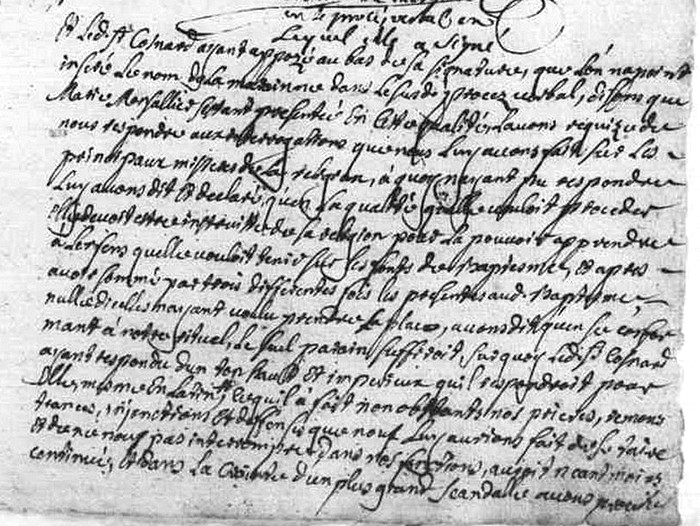 en ce procez verbal en
Lequel Mr a signé
Et Ledit Sr Cosnard ayant apposé au bas de sa signature, que L'on na point
inseré Le nom de La marainne dans Le susdit procez verbal, disons que
Marie Marsallice sestant presentée En cette qualité, Lavons requize de
nous respondre aux interrogations que nous Luy avons fait sur Les
principaux misteres de La religion, à quoy nayant pu respondre
Luy avons dit et declaré, qu'en La qualité qu'elle vouloit proceder
elle devoit estre instruitte de sa religion pour La pouvoir apprendre
à Lenfens quelle vouloit tenir sur les fonts de Baptesme, et apres
avoir sommé par trois differentes fois les presentes aud. Baptesme,
nulle dicelles nayant voulu prendre sa place, avons dit qu'en se confor
mant à notre rituel, le seul parain suffisoit, surquoy Ledit Sr Cosnard
ayant respondu d'un ton hault et imperieux qu'il respondroit pour
Elle, mesme En Latin, ce quil a fait nonobstant nos prieres, remons
trances, injonctions et deffenses que nous Luy aurions fait de se taire
et de ne nous pas interrompre dans nos fonctions, auroit neantmoins
continué, et dans La crainte d'un plus grand scandalle avons